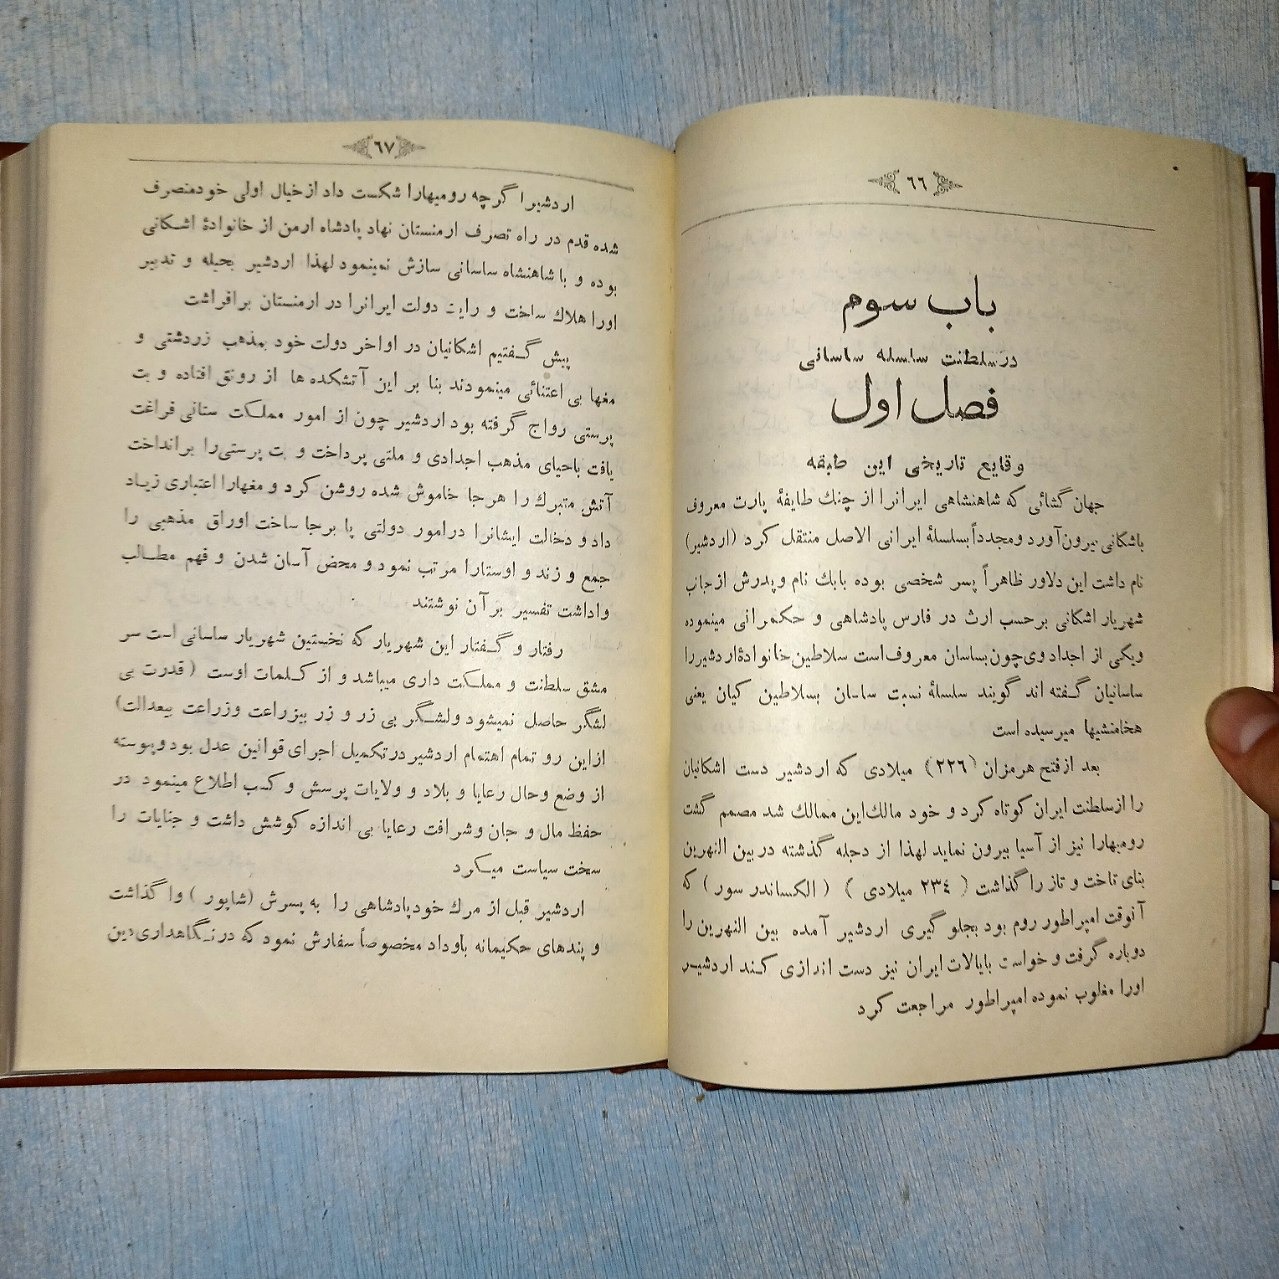 ٦٦
باب سوم
در سلطنت سلسله ساسانی
فصل اول
وقایع تاریخی این طبقه
جهان گشائی که شاهنشاهی ایرانرا از چنك طایفهٔ پارت معروف
باشکانی بیرون آورد و مجدداً بسلسلهٔ ایرانی الاصل منتقل کرد (اردشیر)
نام داشت این دلاور ظاهراً پسر شخصی بوده بابك نام و پدرش از جانب
شهریار اشکانی بر حسب ارث در فارس پادشاهی و حکمرانی مینموده
ویکی از اجداد وی چون بساسان معروف است سلاطین خانوادهٔ اردشیر را
ساسانیان گفته اند گویند سلسلهٔ نسبت ساسان بسلاطین کیان یعنی
هخامنشیها میرسیده است
بعد از فتح هرمزان (٢٢٦) میلادی که اردشیر دست اشکانیان
را از سلطنت ایران کوتاه کرد و خود مالك این ممالك شد مصمم گشت
رومیهارا نیز از آسیا بیرون نماید لهذا از دجله گذشته در بین النهرین
بنای تاخت و تاز را گذاشت (٢٣٤ میلادی) (الکساندر سور) که
آنوقت امپراطور روم بود بجلو گیری اردشیر آمده بین النهرین را
دوباره گرفت و خواست بایالات ایران نیز دست اندازی کند اردشیر
اورا مغلوب نموده امپراطور مراجعت کرد
٦٧
اردشیرا گرچه رومیهارا شکست داد از خیال اولی خود منصرف
شده قدم در راه تصرف ارمنستان نهاد پادشاه ارمن از خانوادهٔ اشکانی
بوده و با شاهنشاه ساسانی سازش نمینمود لهذا اردشیر بحیله و تدبیر
اورا هلاك ساخت و رایت دولت ایرانرا در ارمنستان برافراشت
پیش گفتیم اشکانیان در اواخر دولت خود بمذهب زردشتی و
مغها بی اعتنائی مینمودند بنا بر این آتشکده ها از رونق افتاده و بت
پرستی رواج گرفته بود اردشیر چون از امور مملکت ستانی فراغت
یافت باحیای مذهب اجدادی و ملتی پرداخت و بت پرستی را برانداخت
آتش متبرك را هر جا خاموش شده روشن کرد و مغهارا اعتباری زیاد
داد و دخالت ایشانرا در امور دولتی پا بر جا ساخت اوراق مذهبی را
جمع و زند و اوستارا مرتب نمود و محض آسان شدن و فهم مطالب
واداشت تفسیر بر آن نوشتند
رفتار و گفتار این شهریار که نخستین شهریار ساسانی است سر
مشق سلطنت و مملکت داری میباشد و از کلمات اوست (قدرت بی
لشگر حاصل نمیشود ولشگر بی زر و زر بیزراعت وزراعت بیعدالت)
ازاین رو تمام اهتمام اردشیر در تکمیل اجرای قوانین عدل بود و پیوسته
از وضع وحال رعایا و بلاد و ولایات پرسش و کسب اطلاع مینمود در
حفظ مال و جان وشرافت رعایا بی اندازه کوشش داشت و جنایات را
سخت سیاست میکرد
اردشیر قبل از مرك خود پادشاهی را به پسرش (شاپور) وا گذاشت
و پندهای حکیمانه باوداد مخصوصاً سفارش نمود که در نگاهداری دین